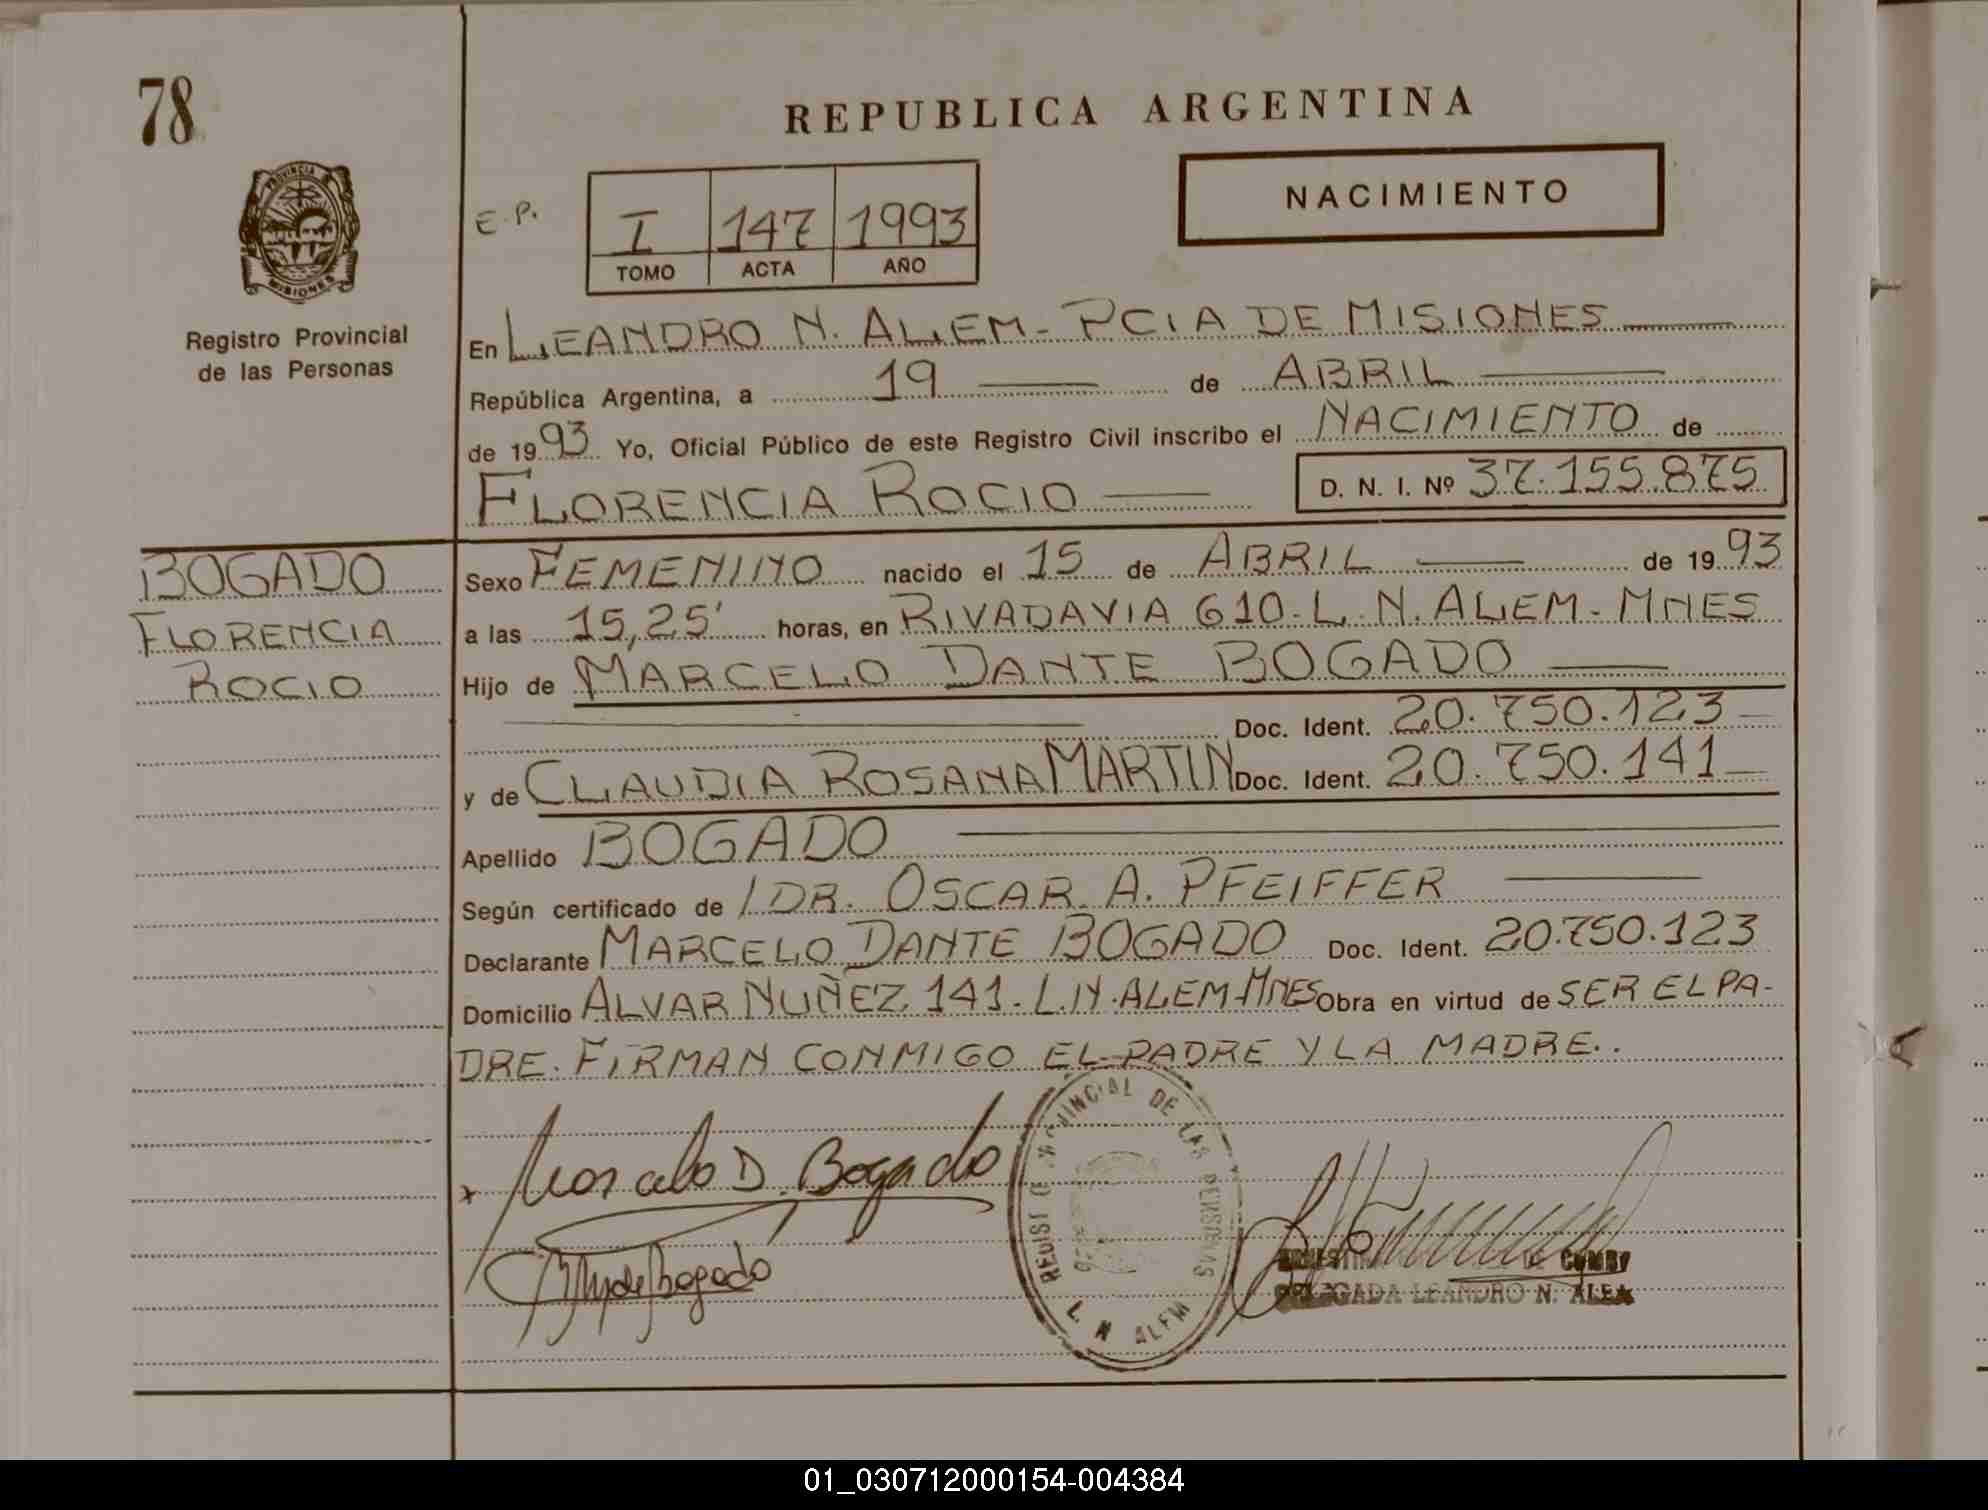 78
REPUBLICA ARGENTINA
PROVINCIA
MISIONES
Registro Provincial
de las Personas
E.P.
I 147 1993
TOMO ACTA AÑO
NACIMIENTO
En LEANDRO N. ALEM - PCIA DE MISIONES
República Argentina, a 19 de ABRIL
de 1993 Yo, Oficial Público de este Registro Civil inscribo el NACIMIENTO de
FLORENCIA ROCIO D. N. I. Nº 37.155.875
BOGADO
FLORENCIA
ROCIO
Sexo FEMENINO nacido el 15 de ABRIL de 1993
a las 15,25' horas, en RIVADAVIA 610-L.N.ALEM-MNES
Hijo de MARCELO DANTE BOGADO
Doc. Ident. 20.750.123
y de CLAUDIA ROSANA MARTIN Doc. Ident. 20.750.141
Apellido BOGADO
Según certificado de DR. OSCAR A. PFEIFFER
Declarante MARCELO DANTE BOGADO Doc. Ident. 20.750.123
Domicilio ALVAR NUÑEZ 141-L.N.ALEM-MNES Obra en virtud de SER EL PA-
DRE. FIRMAN CONMIGO EL PADRE Y LA MADRE..
Marcelo D. Bogado
de Bogado
DE LAS PERSONAS
L. N ALEM
DELEGADA LEANDRO N. ALEM
01_030712000154-004384